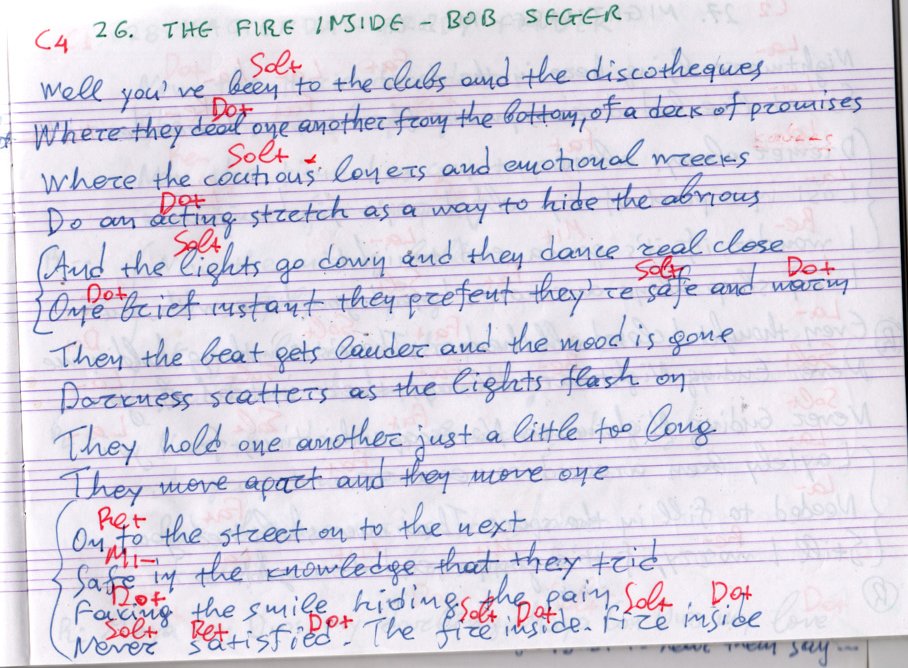 C4 26. THE FIRE INSIDE - BOB SEGER
Sol+
Well you've been to the clubs and the discotheques
Do+
Where they deal one another from the bottom, of a deck of promises
Sol+
Where the coutious lovers and emotional wrecks
Do+
Do an acting stretch as a way to hide the abvious
Sol+
And the lights go down and they dance real close
Do+ Sol+ Do+
One brief instant they pretent they're safe and warm
Then the beat gets lauder and the mood is gone
Darkness scatters as the lights flash on
They hold one another just a little too long
They move apart and they move one
Re+
On to the street on to the next
Mi-
Safe in the knowledge that they trid
Do+
Faking the smile hiding the pain
Sol+ Re+ Do+ Sol+ Do+ Sol+ Do+
Never satisfied. The fire inside. Fire inside